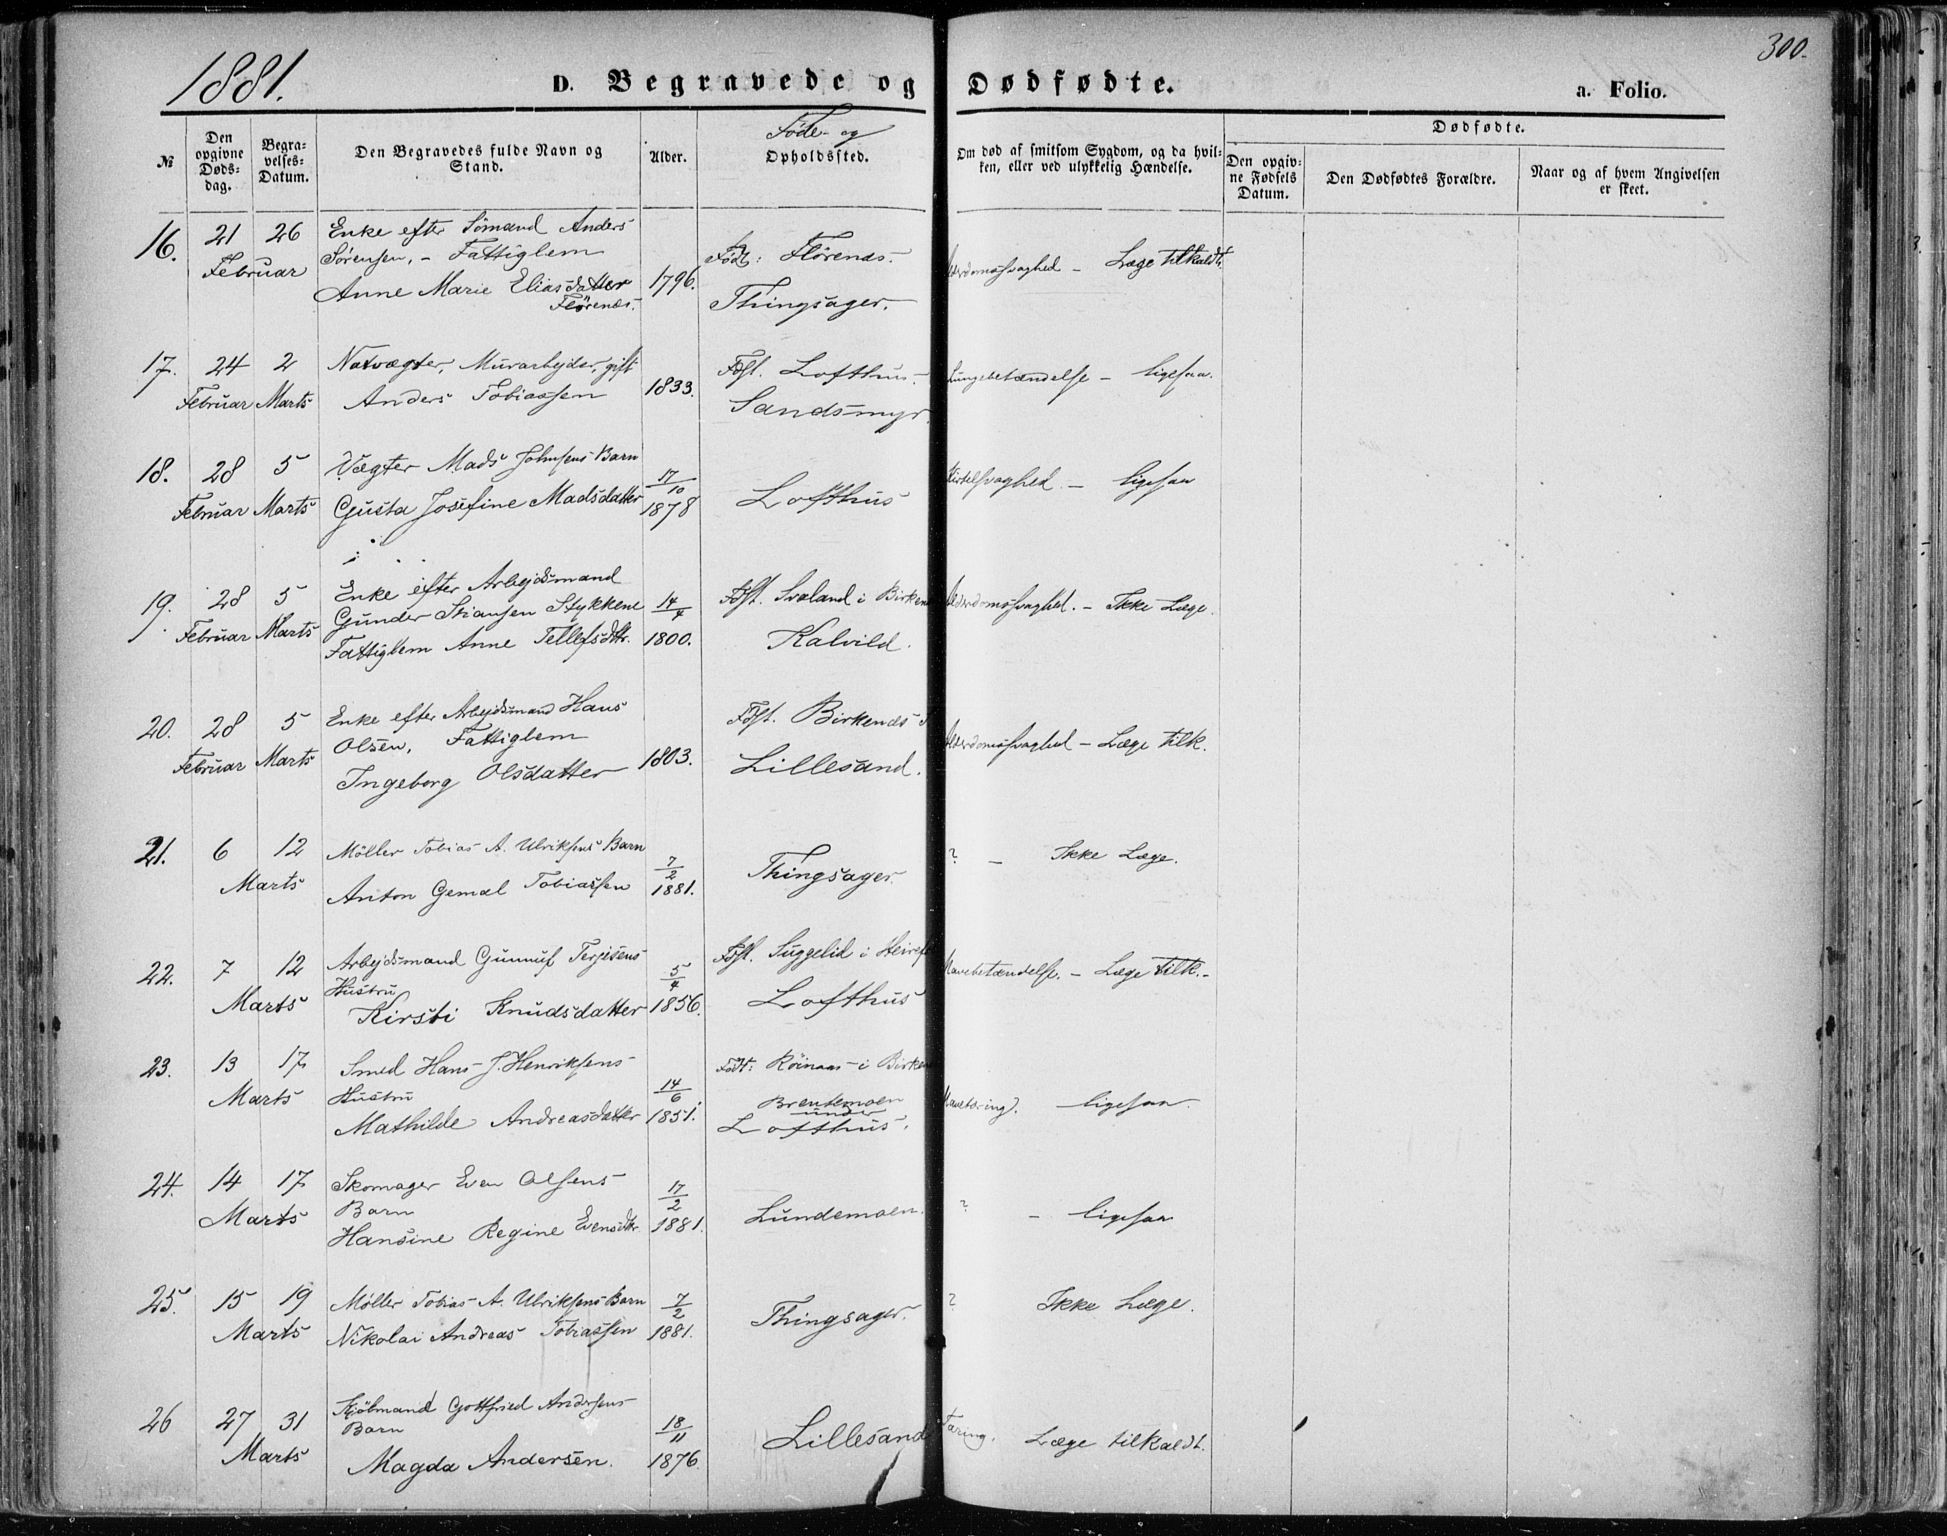 1881.
D. Begravede og Dødfødte.
a. Folio.
300.
№
Den opgivne Døds-dag.
Begra-velses-Datum.
Den Begravedes fulde Navn og Stand.
Alder.
Føde- og
Opholdssted.
Om død af smitsom Sygdom, og da hvil-
ken, eller ved ulykkelig Hændelse.
Dødfødte.
Den opgiv-
ne Fødsels
Datum.
Den Dødfødtes Forældre.
Naar og af hvem Angivelsen
er skeet.
16. 21 26 Enke efter Sømand Anders
Februar Sørensen, - Fattiglem
Anne Marie Eliasdatter
Flørenæs.
1796.
Født: Flørenæs.
Thingsager.
Alderdomssvaghed - Læge tilkaldt.
17. 24 2 Natvægter, Murarbejder, gift
Februar Marts Anders Tobiassen
1833.
Fdst. Lofthus.
Sandsmyr.
Lungebetændelse - ligesaa.
18. 28 5 Vægter Mads Johnsens Barn
Februar Marts Gusta Josefine Madsdatter
17/10 1878
Lofthus
Kirtelsvaghed - ligesaa
19. 28 5 Enke efter Arbejdsmand
Februar Marts Gunder Stiansen Stykkene
Fattiglem Anne Tellefsdttr.
14/4 1800.
Fdst. Svaland i Birkenæs
Kalvild.
Alderdomssvaghed. - Ikke Læge.
20. 28 5 Enke efter Arbejdsmand Hans
Februar Marts Olsen, Fattiglem
Ingeborg Olsdatter
1803.
Fdst. Birkenæs
Lillesand.
Alderdomssvaghed - Læge tilk.
21. 6 12 Møller Tobias A. Ulriksens Barn
Marts Anton Gemal Tobiassen
7/2 1881.
Thingsager.
? - Ikke Læge.
22. 7 12 Arbejdsmand Gunnuf Terjesens
Marts Hustru
Kirsti Knudsdatter
5/4 1856.
Fdst. Suggelid i Heiref
Lofthus
Mavebetændelse. - Læge tilk. -
23. 13 17 Smed Hans J. Henriksens
Marts Hustru
Mathilde Andreasdatter
14/6 1851.
Født: Røinaas i Birken
Brentemoen
under
Lofthus.
Mavetæring). ligesaa.
24. 14 17 Skomager Even Olsens
Marts Barn
Hansine Regine Evensdttr.
17/2 1881.
Lundemoen.
? - ligesaa
25. 15 19 Møller Tobias A. Ulriksens Barn
Marts Nikolai Andreas Tobiassen
7/2 1881.
Thingsager.
? Ikke Læge.
26 27 31 Kjøbmand Gottfried Andersens
Marts Barn
Magda Andersen.
18/11 1876.
Lillesand
Tæring. Læge tilkaldt.